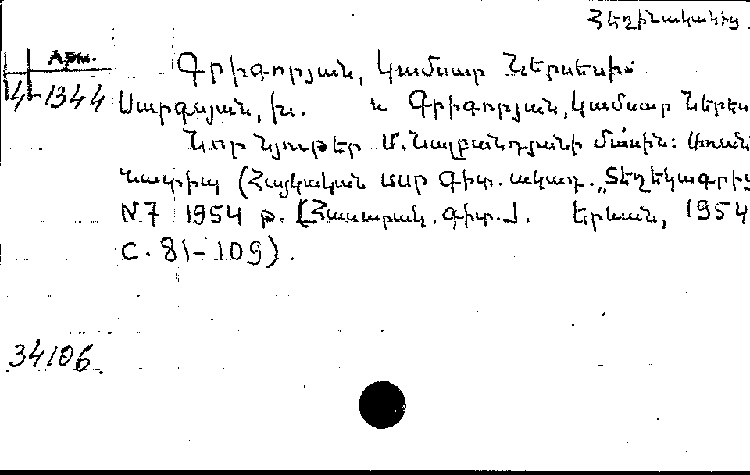 Հեղինականիշ
Арм.
4-1344
Գրիգորյան, Կամսար Ներսեսի:
Սարգսյան, Խ. և Գրիգորյան, Կամսար Ներսես
Նոր նյութեր Մ. Նալբանդյանի մասին: Առանձ
նատիպ (Հայկական ՍՍՌ գիտ. ակադ. „Տեղեկագրից
N 7 1954 թ. [Հասարակ. գիտ.]. Երևան, 1954
С. 81-109).
34106